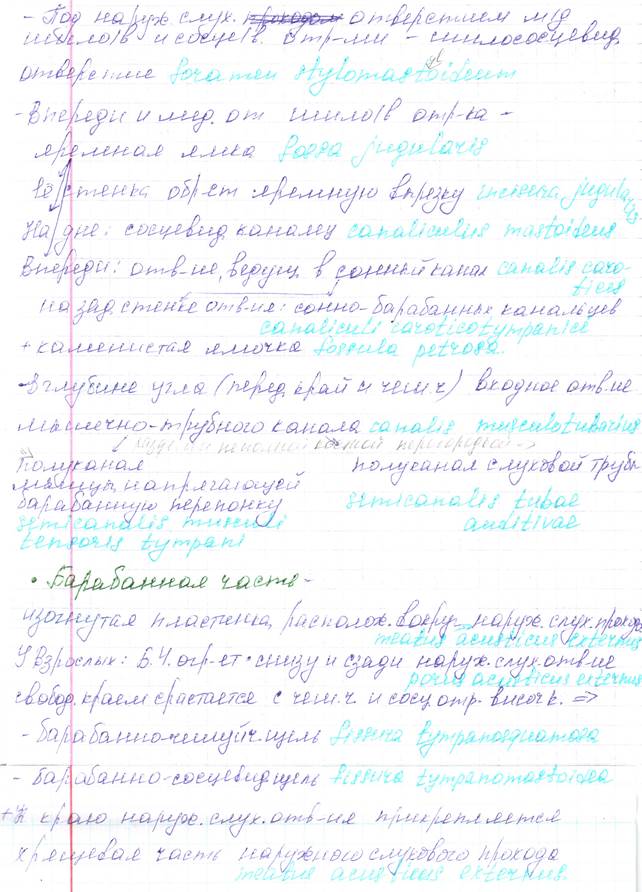 - Под наруж. слух. проходом отверстием м/д
шилов и сосцев. отр-ми - шилососцевид.
отверстие foramen stylomastoideum
- Впереди и мед. от шилов отр-ка -
яременая ямка fossa jugularis
стенка обр-ет яремную вырезку incisura jugularis
На дне: сосцевид. каналец canaliculus mastoideus
Впереди: отв-ие, ведущ. в сонный канал canalis caro-
ticus
на зад. стенке отв-ия: сонно-барабанных канальцев
canaliculi caroticotympanici
+ каменистая ямочка fossula petrosa.
- В глубине угла (перед. край и чеш. ч) входное отв-ие
мышечно-трубного канала canalis musculotubarius
неполной костной перегородкой
Полуканал полуканал слуховой трубы
мышцы, напрягающей
барабанную перепонку semicanalis tubae
semicanalis musculi auditivae
tensoris tympani
• Барабанная часть -
изогнутая пластинка, располож. вокруг наруж. слух. прохода
meatus acusticus externus
У взрослых: Б.ч. огр-ет снизу и сзади наруж. слух. отв-ие
porus acusticus externus
свобод. краем срастается с чеш. ч. и сосц. отр. височ. к. =>
- барабанно-чешуйч. щель fissura tympanosquamosa
- барабанно-сосцевид. щель fissura tympanomastoidea
+ К краю наруж. слух. отв-ия прикрепляется
хрящевая часть наружного слухового прохода
meatus acusticus externus.